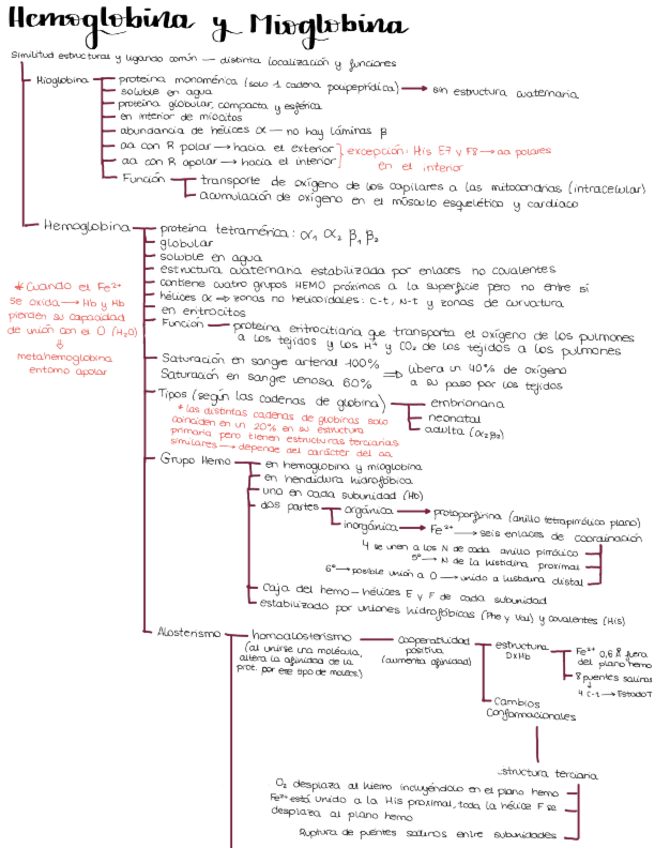 Hemoglobina y Mioglobina
Similitud estructural y ligando común — distinta localización y funciones
Mioglobina
proteína monomérica (solo 1 cadena polipeptídica) → sin estructura cuaternaria
soluble en agua
proteína globular, compacta y esférica
en interior de miocitos
abundancia de hélices α — no hay láminas β
aa con R polar → hacia el exterior
aa con R apolar → hacia el interior
excepción: His E7 y F8 → aa polares
en el interior
Función
transporte de oxígeno de los capilares a las mitocondrias (intracelular)
acumulación de oxígeno en el músculo esquelético y cardíaco
Hemoglobina
proteína tetramérica: α₁ α₂ β₁ β₂
globular
soluble en agua
estructura cuaternaria estabilizada por enlaces no covalentes
contiene cuatro grupos HEMO próximos a la superficie pero no entre sí
hélices α → zonas no helicoidales: C-t, N-t y zonas de curvatura
en eritrocitos
Función — proteína eritrocitaria que transporta el oxígeno de los pulmones
a los tejidos y los H⁺ y CO₂ de los tejidos a los pulmones
* Cuando el Fe²⁺
se oxida → Hb y Mb
pierden su capacidad
de unión con el O (H₂O)
⇓
metahemoglobina
entorno apolar
Saturación en sangre arterial 100%
Saturación en sangre venosa 60%
⇒ libera un 40% de oxígeno
a su paso por los tejidos
Tipos (según las cadenas de globina)
embrionaria
neonatal
adulta (α₂β₂)
* las distintas cadenas de globinas solo
coinciden en un 20% en su estructura
primaria pero tienen estructuras terciarias
similares → depende del carácter del aa
Grupo Hemo
en hemoglobina y mioglobina
en hendidura hidrofóbica
uno en cada subunidad (Hb)
dos partes
orgánica → protoporfirina (anillo tetrapirrólico plano)
inorgánica → Fe²⁺ → seis enlaces de coordinación
4 se unen a los N de cada anillo pirrólico
5º → N de la histidina proximal
6º → posible unión a O → unido a histidina distal
Caja del hemo — hélices E y F de cada subunidad
estabilizado por uniones hidrofóbicas (Phe y Val) y covalentes (His)
Alosterismo
homoalosterismo
(al unirse una molécula,
altera la afinidad de la
prot. por ese tipo de molécs.)
cooperatividad
positiva
(aumenta afinidad)
estructura
DxHb
Fe²⁺ 0,6 Å fuera
del plano hemo
8 puentes salinos
↓
4 C-t → Estado T
Cambios
Conformacionales
structura terciaria
O₂ desplaza al hierro incluyéndolo en el plano hemo
Fe²⁺ está unido a la His proximal, toda la hélice F se
desplaza al plano hemo
Ruptura de puentes salinos entre subunidades